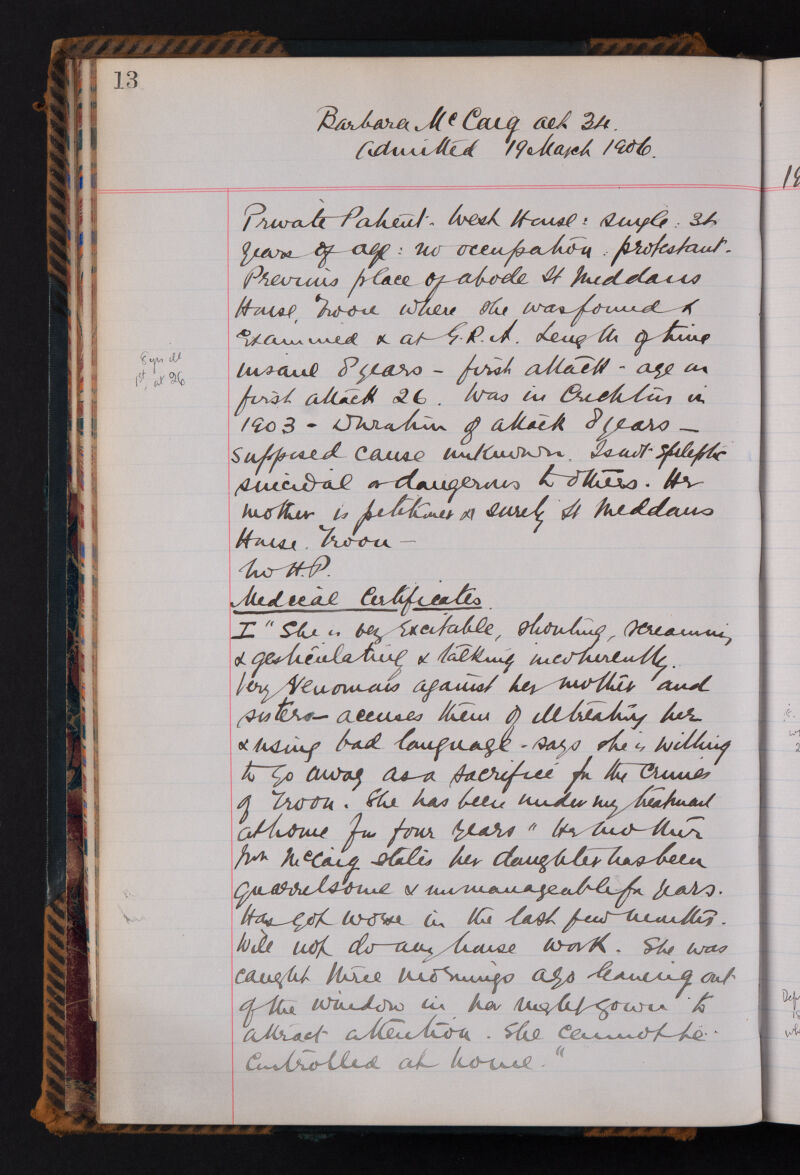 13
Barbara McCaig aet 34.
Admitted 19 March 1906.
Private Patient. West House: single: 34
years of age: no occupation: protestant.
Previous place of abode St Meddans
House, Troon where she was found &
Examined & at G.R.A. Length of time
insane 8 years - first attack - age on
first attack 26. Was in Crichton in
1903 - Duration of attack 8 years -
Supposed cause unknown. Is not Epileptic
suicidal or dangerous to others. Her
mother is petitioner & surety St Meddans
House. Troon -
No H.P.
8 yrs ill
1st, at 26
Medical Certificates.
I " She is very Excitable, shouting, screaming
& gesticulating & talking incoherently.
Very Venomous against her mother and
sisters - accuses them of illtreating her
& using bad language - says she is willing
to go away as a sacrifice for the Crimes
of Troon. She has been under my treatment
at home for four years " Her mother
Mrs McCaig states her daughter has been
quarrelsome & unmanageable for years.
Has got worse in the last few months.
Will not do any house work. She was
caught three mornings ago leaning out
of the window in her nightgown to
attract attention. She cannot be
Controlled at home."